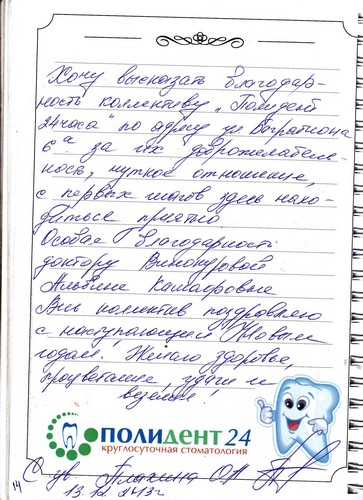 Хочу высказать благодар-
ность коллективу „Полидент
24 часа" по адресу ул Багратиона
6а за их доброжелатель-
ность, чуткое отношение,
с первых шагов здесь нахо-
диться приятно.
Особая благодарность
доктору Винокуровой
Альбине
Весь коллектив поздравляю
с наступающим Новым
годом. Желаю здоровья,
процветания, удачи и
везения.
ПОЛИДЕНТ 24
круглосуточная стоматология
С ув
13.12.2013г
14